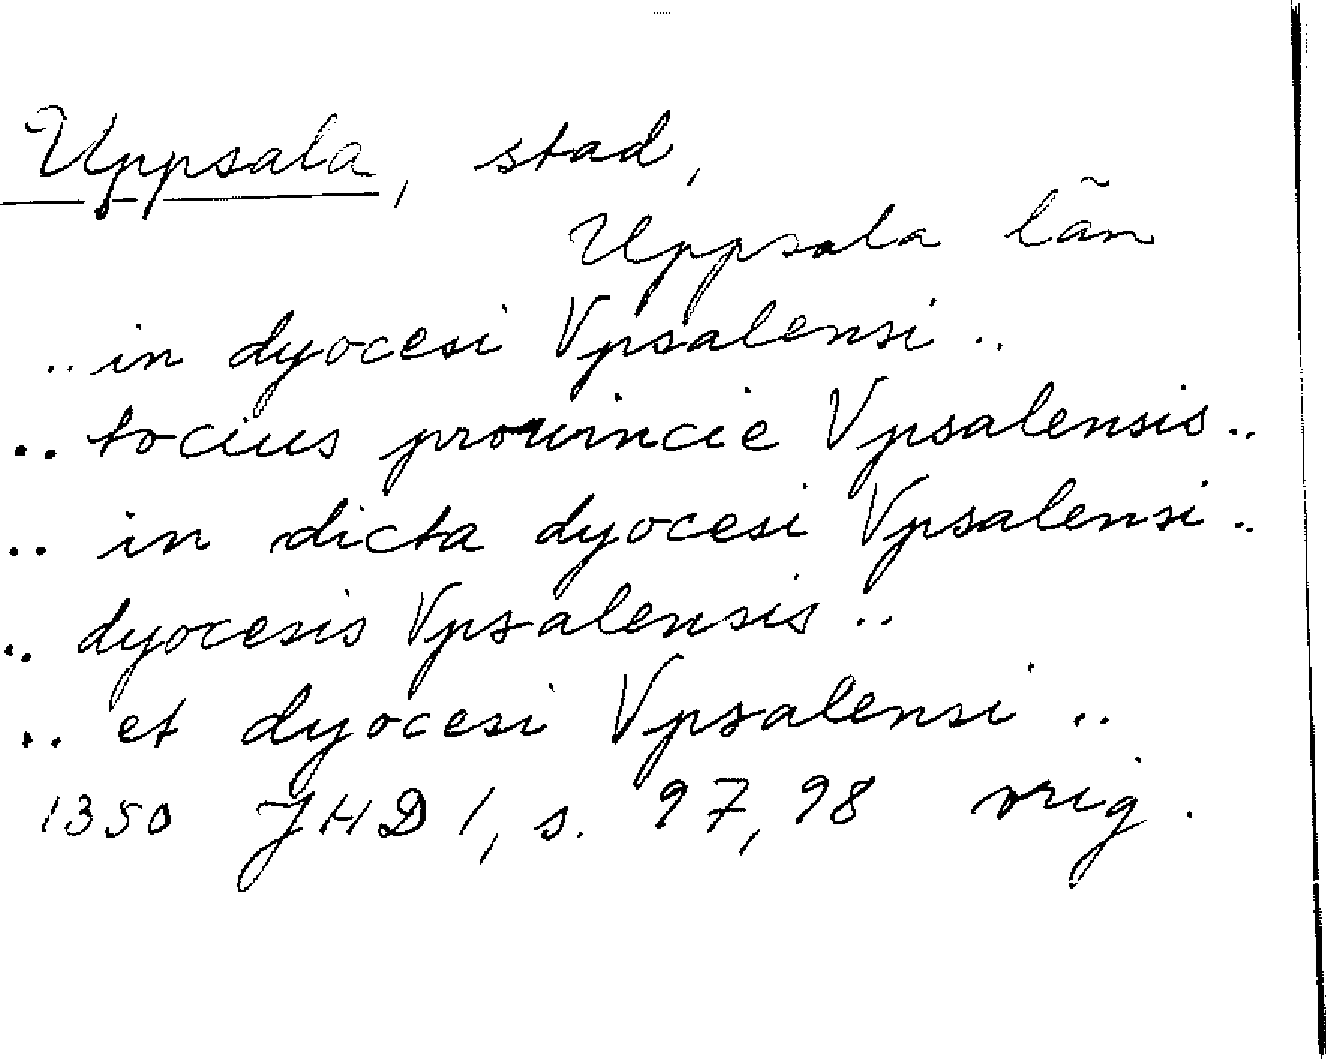 Uppsala, stad,
Uppsala län
.. in dyocesi Vpsalensi ..
.. tocius prouincie Vpsalensis ..
.. in dicta dyocesi Vpsalensi ..
.. dyocesis Vpsalensis ..
.. et dyocesi Vpsalensi ..
1350 JHD 1, s. 97, 98 orig.